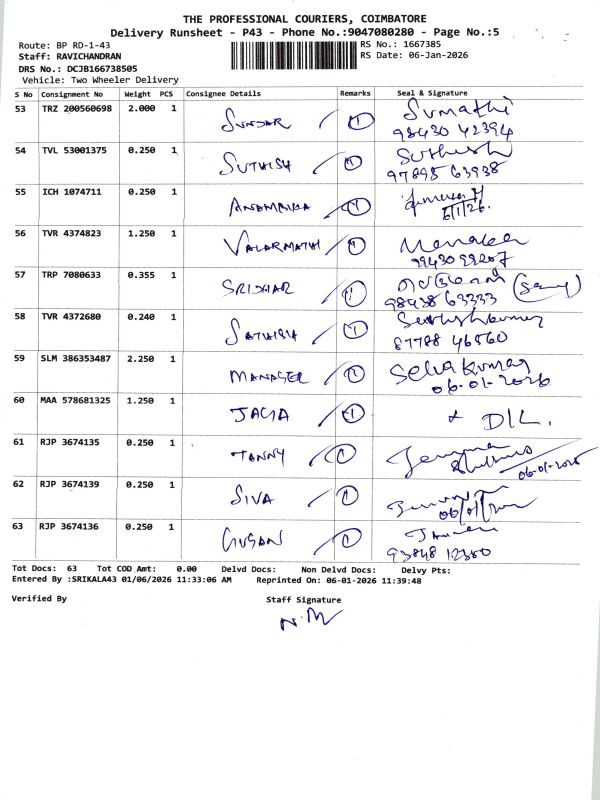 THE PROFESSIONAL COURIERS, COIMBATORE
Delivery Runsheet - P43 - Phone No.:9047080280 - Page No.:5
Route: BP RD-1-43
RS No.: 1667385
Staff: RAVICHANDRAN
RS Date: 06-Jan-2026
DRS No.: DCJB166738505
Vehicle: Two Wheeler Delivery
S No Consignment No Weight PCS Consignee Details Remarks Seal & Signature
53 TRZ 200560698 2.000 1 SUNDAR 1 Sumathi
98430 42394
54 TVL 53001375 0.250 1 SUTHISH 1 Suthish
97895 63938
55 ICH 1074711 0.250 1 1
6/1/26.
56 TVR 4374823 1.250 1 VALARMATHI 1 Menaka
99430 99207
57 TRP 7080633 0.355 1 SRIDHAR 1
98438 63333
58 TVR 4372680 0.240 1 SATHISH 1 Sathishkumar
87788 46860
59 SLM 386353487 2.250 1 MANAGER 1 Selvakumar
06-01-2026
60 MAA 578681325 1.250 1 JAYA 1 D/L.
61 RJP 3674135 0.250 1 TANNY 1
06-01-2026
62 RJP 3674139 0.250 1 SIVA 1
06/01/2026
63 RJP 3674136 0.250 1 GUGAN 1
93848 12380
Tot Docs: 63 Tot COD Amt: 0.00 Delvd Docs: Non Delvd Docs: Delvy Pts:
Entered By :SRIKALA43 01/06/2026 11:33:06 AM Reprinted On: 06-01-2026 11:39:48
Verified By Staff Signature